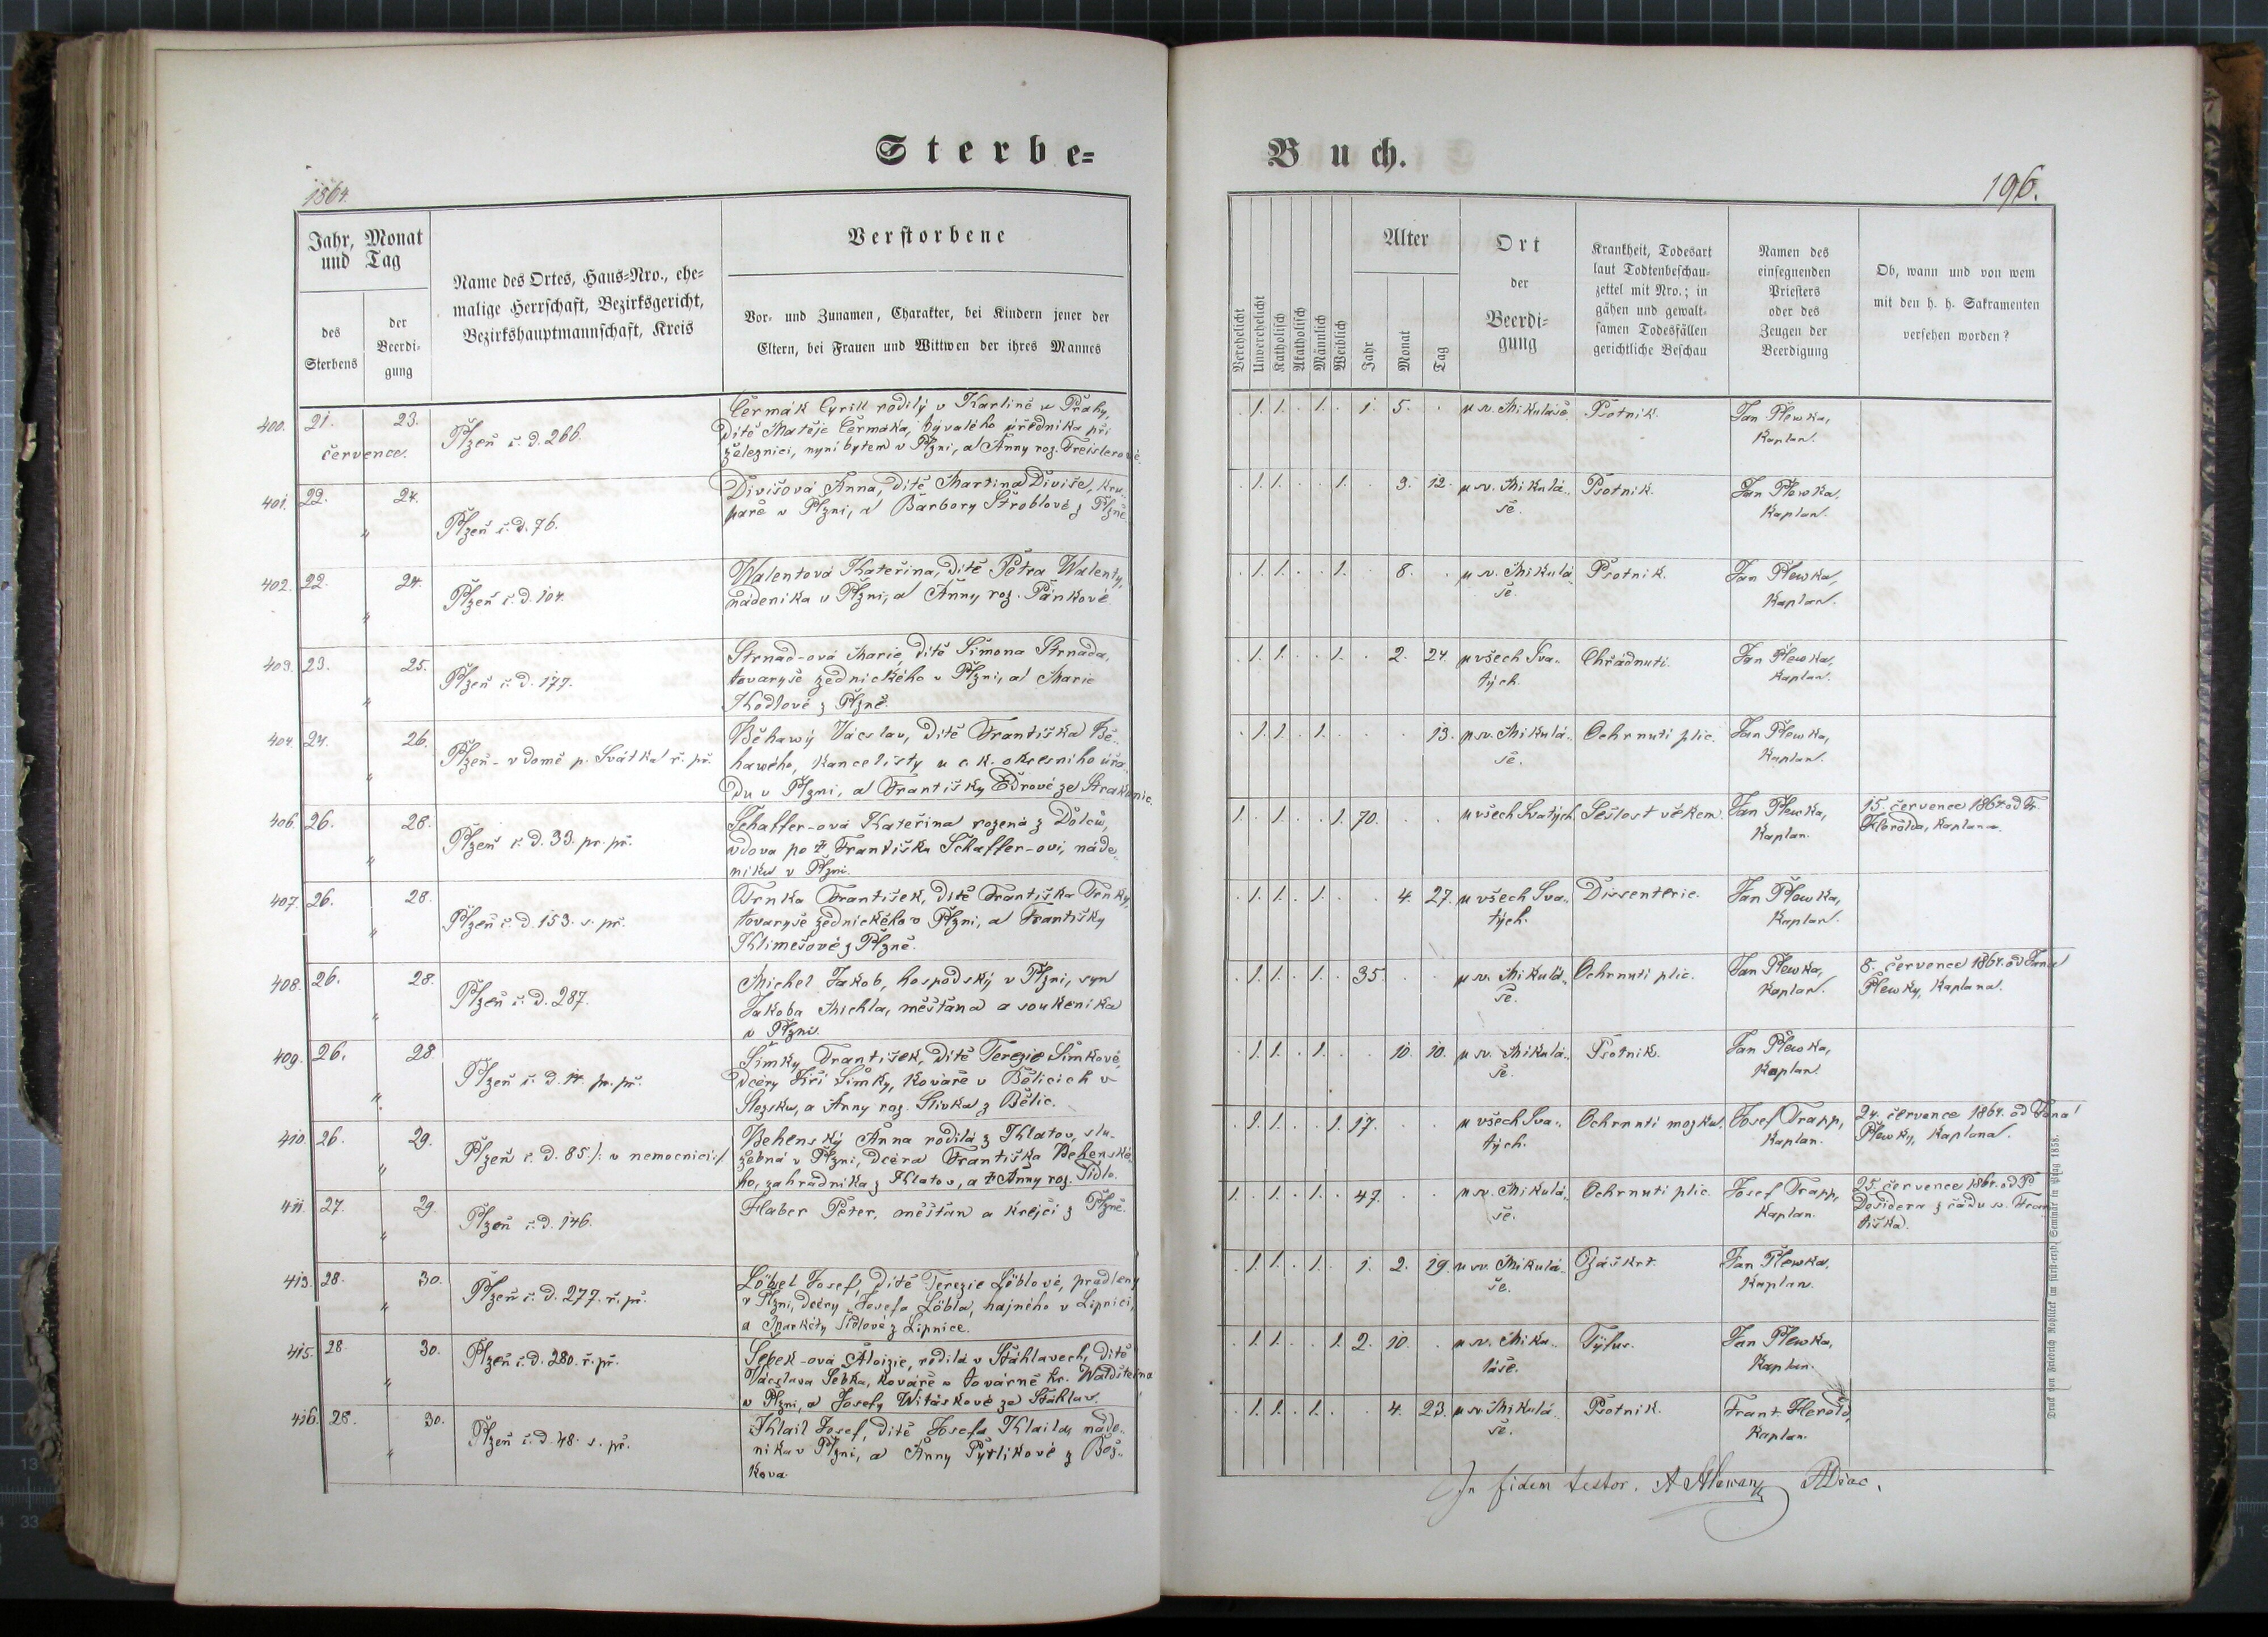 Sterbe-
1864.
Jahr, Monat
und Tag
des
Sterbens
der
Beerdi-
gung
Name des Ortes, Haus-Nro., ehe-
malige Herrschaft, Bezirksgericht,
Bezirkshauptmannschaft, Kreis
Verstorbene
Vor- und Zunamen, Charakter, bei Kindern jener der
Eltern, bei Frauen und Wittwen der ihres Mannes
400. 21. 23.
července.
Plzeň č. d. 266.
Čermák Cyrill rodilý v Karlíně u Prahy,
dítě Matěje Čermáka, bývalého úředníka při
železnici, nyní bytem v Plzni, a Anny roz. Treislerové.
401. 22. 24.
"
Plzeň č. d. 76.
Divišová Anna, dítě Martina Diviše, kru-
paře v Plzni, a Barbory Štroblové z Plzně.
402. 22. 24.
"
Plzeň č. d. 104.
Walentová Kateřina, dítě Petra Walenty,
nádeníka v Plzni, a Anny roz. Pánkové.
403. 23. 25.
"
Plzeň č. d. 177.
Strnad-ová Marie, dítě Šimona Strnada,
tovaryše zednického v Plzni, a Marie
Kodlové z Plzně.
404. 24. 26.
"
Plzeň - v domě p. Svátka ř. př.
Běhawý Václav, dítě Františka Bě-
hawého, kancelisty u c. k. okresního úřa-
du v Plzni, a Františky Edrové ze Strakonic.
406. 26. 28.
"
Plzeň č. d. 33. pr. př.
Schaffer-ová Kateřina rozená z Dolců,
vdova po † Františku Schaffer-ovi, náde-
níku v Plzni.
407. 26. 28.
"
Plzeň č. d. 153. s. př.
Trnka František, dítě Františka Trnky,
tovaryše zednického v Plzni, a Františky
Klimešové z Plzně.
408. 26. 28.
"
Plzeň č. d. 287.
Michel Jakob, hospodský v Plzni, syn
Jakoba Michla, měšťana a soukeníka
v Plzni.
409. 26. 28.
"
Plzeň č. d. 14. pr. př.
Šimky František, dítě Terezie Šimkové,
dcery Jiří Šimky, kováře v Bělicích v
Slezsku, a Anny roz. Slivka z Bělic.
410. 26. 29.
"
Plzeň č. d. 85 /: v nemocnici :/
Behenský Anna rodilá z Klatov, slu-
žebná v Plzni, dcera Františka Behenské-
ho, zahradníka z Klatov, a † Anny roz. Tidlo.
411. 27. 29.
"
Plzeň č. d. 146.
Haber Peter, měšťan a krejčí z Plzně.
413. 28. 30.
"
Plzeň č. d. 277. ř. př.
Löbel Josef, dítě Terezie Löblové, pradleny
v Plzni, dcery Josefa Löbla, hajného v Lipnici,
a Markéty Šidlové z Lipnice.
415. 28. 30.
"
Plzeň č. d. 280. ř. př.
Šebek-ová Aloizie, rodilá v Šťáhlavech, dítě
Václava Šebka, kováře v továrně hr. Waldšteina
v Plzni, a Josefy Witáskové ze Šťáhlav.
416. 28. 30.
"
Plzeň č. d. 48. s. př.
Klail Josef, dítě Josefa Klaila, náde-
níka v Plzni, a Anny Pytlíkové z Bož-
kova.
Buch.
196.
Verehelicht
Unverehelicht
Katholisch
Akatholisch
Männlich
Weiblich
Alter
Jahr
Monat
Tag
Ort
der
Beerdi-
gung
Krankheit, Todesart
laut Todtenbeschau-
zettel mit Nro.; in
gähen und gewalt-
samen Todesfällen
gerichtliche Beschau
Namen des
einsegnenden
Priesters
oder des
Zeugen der
Beerdigung
Ob, wann und von wem
mit den h. h. Sakramenten
versehen worden?
. 1. 1. . 1. . 1. 5. . u sv. Mikuláše. Psotník. Jan Plewka,
Kaplan.
. 1. 1. . . 1. . 3. 12. u sv. Mikulá- Psotník. Jan Plewka,
še. Kaplan.
. 1. 1. . . 1. . 8. . u sv. Mikulá- Psotník. Jan Plewka,
še. Kaplan.
. 1. 1. . . 1. . 2. 24. u všech Sva- Chřadnutí. Jan Plewka,
tých. Kaplan.
. 1. 1. . 1. . . . 13. u sv. Mikulá- Ochrnutí plic. Jan Plewka,
še. Kaplan.
1. . 1. . . 1. 70. . . u všech Svatých Sešlost věkem. Jan Plewka, 15. července 1864 od Fr.
Kaplan. Herolda, kaplana.
. 1. 1. . 1. . . 4. 27. u všech Sva- Dissenterie. Jan Plewka,
tých. Kaplan.
. 1. 1. . 1. . 35. . . u sv. Mikulá- Ochrnutí plic. Jan Plewka, 8. července 1864. od Jana
še. Kaplan. Plewky, kaplana.
. 1. 1. . 1. . . 10. 10. u sv. Mikulá- Psotník. Jan Plewka,
še. Kaplan.
. 1. 1. . . 1. 17. . . u všech Sva- Ochrnutí mozku. Josef Trapp, 24. července 1864. od Jana
tých. Kaplan. Plewky, kaplana.
1. . 1. . 1. . 47. . . u sv. Mikulá- Ochrnutí plic. Josef Trapp, 25. července 1864. od P.
še. Kaplan. Desidera z řádu sv. Fran-
tiška.
. 1. 1. . 1. . 1. 2. 19. u sv. Mikulá- Záškrt. Jan Plewka,
še. Kaplan.
. 1. 1. . . 1. 2. 10. . u sv. Miku- Týfus. Jan Plewka,
láše. Kaplan.
. 1. 1. . 1. . . 4. 23. u sv. Mikulá- Psotník. Frant. Herold,
še. Kaplan.
In fidem testor. A ADiac.
Druck von Friedrich Rohliček im fürsterzb. Seminär in Prag 1858.